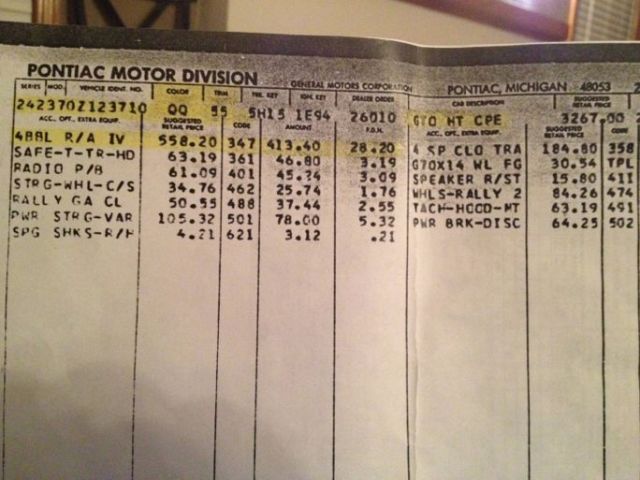 PONTIAC MOTOR DIVISION GENERAL MOTORS CORPORATION PONTIAC, MICHIGAN 48053 2
SERIES MOD. VEHICLE IDENT. NO. COLOR TRIM TRK. KEY IGN. KEY DEALER ORDER CAR DESCRIPTION SUGGESTED RETAIL PRICE
242370Z123710 QQ 55 5H15 1E94 26010 GTO HT CPE 3267.00 2
ACC., OPT., EXTRA EQUIP. SUGGESTED RETAIL PRICE CODE AMOUNT F.O.H. ACC. OPT., EXTRA EQUIP. SUGGESTED RETAIL PRICE CODE
400L R/A IV 558.20 347 413.40 28.20 4 SP CLO TRA 184.80 358
SAFE-T-TR-HD 63.19 361 46.80 3.19 G70X14 WL FG 30.54 TPL
RADIO P/B 61.09 401 45.24 3.09 SPEAKER R/ST 15.80 411
STRG-WHL-C/S 34.76 462 25.74 1.76 WHLS-RALLY 2 84.26 474
RALLY GA CL 50.55 488 37.44 2.55 TACH-HOOD-MT 63.19 491
PWR STRG-VAR 105.32 501 78.00 5.32 PWR BRK-DISC 64.25 502
SPG SHKS-R/H 4.21 621 3.12 .21